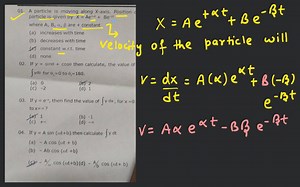 A particle is moving along X-axis. Position
particle is given by X = Ae^αt + Be^-βt
where A, B, α, β are + constant
(a) increases with time
(b) decreases with time
(c) constant w.r.t. time
(d) none
02. If y = sinx + cosx then calculate
for x₁=0 to x₂=π/2
(a) zero (b) 1
(c) 2
03. If y = e^x, then find the value of ∫y dx, for x =
to x=
(a) 1 (b) -1
04. If y = A sin (ωt+b) then calculate ∫y dx,
(a) - A cos (ωt + b)
(b) - Ab cos (ωt + b)
X = Ae^+αt + Be^-βt
Velocity of the particle will
V = dx/dt = A(α)e^αt + B(-β)
e^-βt
V = Aα e^αt - Bβ e^-βt